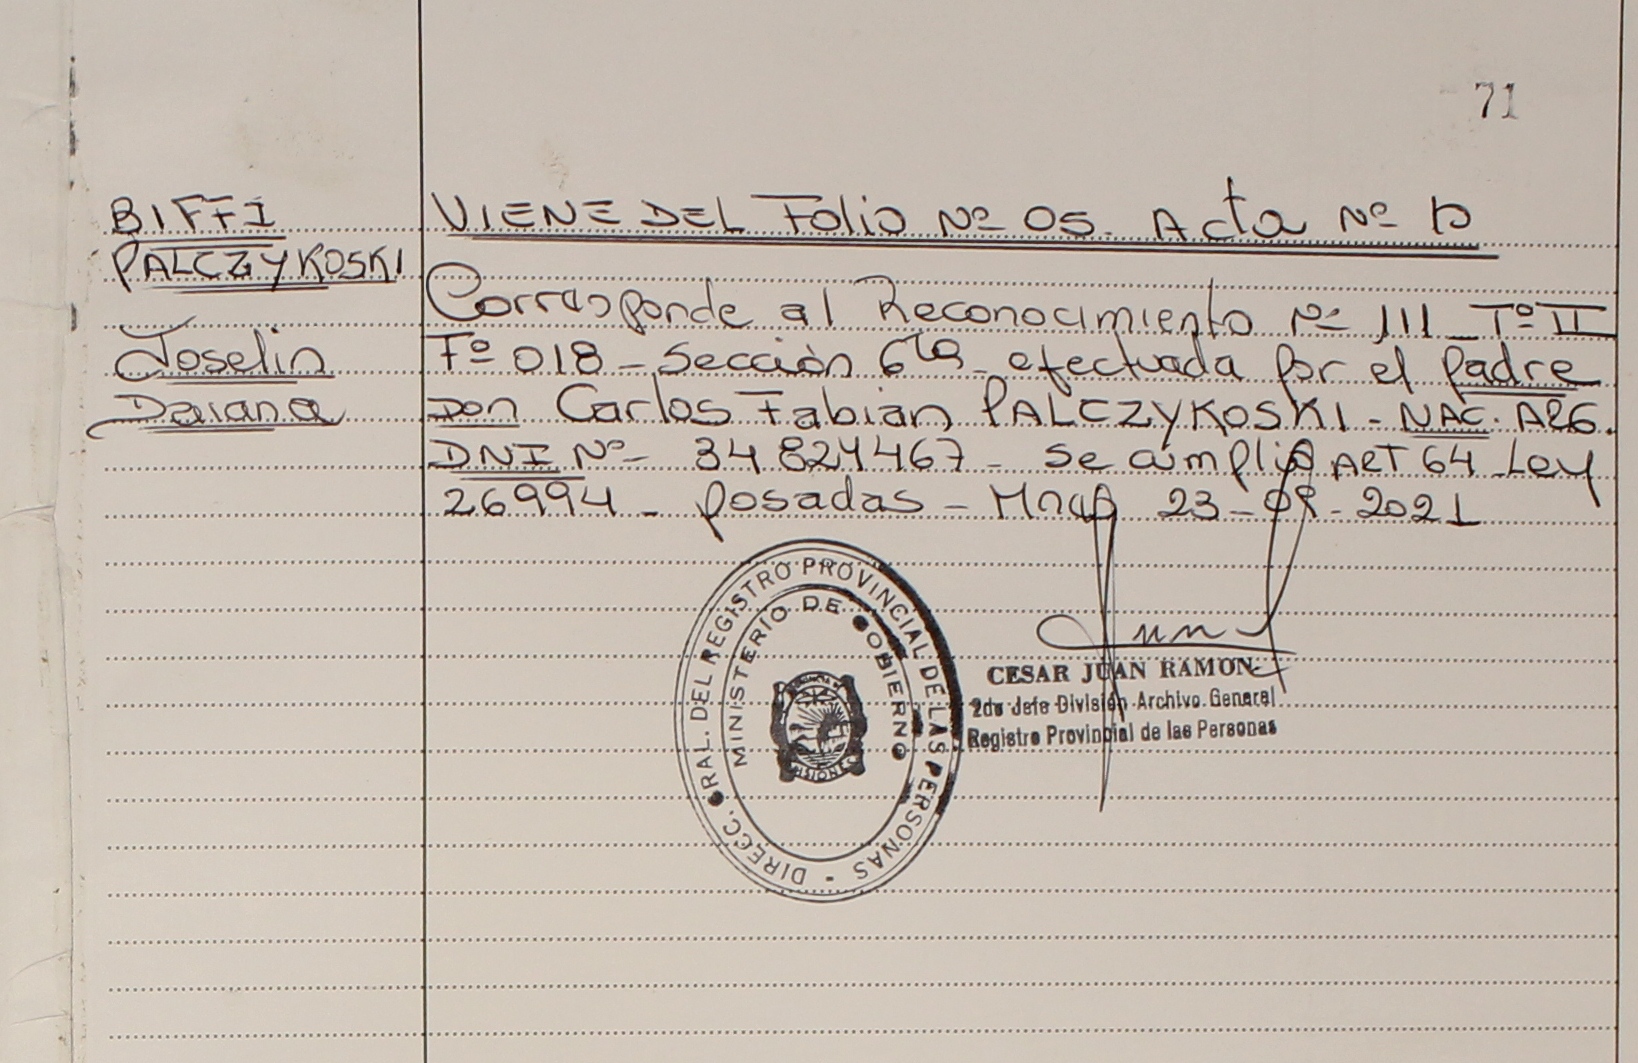 71
BIFFI
PALCZYKOSKI
Joselin
Daiana
VIENE DEL Folio Nº 05. Acta Nº
Corresponde al Reconocimiento Nº 111 Tº II
Fº 018 - Sección 6ta efectuada por el padre
Don Carlos Fabian PALCZYKOSKI - NAC. ARG.
DNI Nº 34.824467 - Se cumplió ART 64 Ley
26994 - Posadas - Mnes 23 - - 2021
DIRECC. GRAL. DEL REGISTRO PROVINCIAL DE LAS PERSONAS -
MINISTERIO DE GOBIERNO
MISIONES
CESAR JUAN RAMON
2do Jefe División Archivo General
Registro Provincial de las Personas